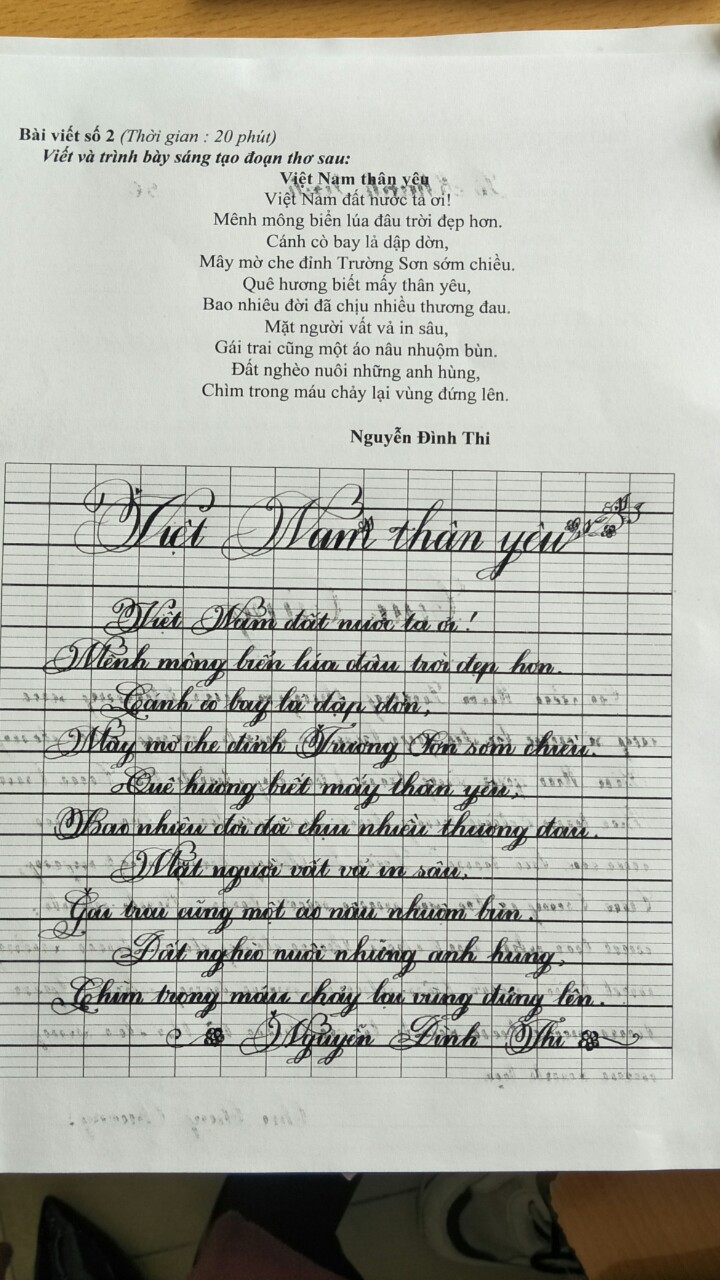 Bài viết số 2 (Thời gian : 20 phút)
Viết và trình bày sáng tạo đoạn thơ sau:
Việt Nam thân yêu
Việt Nam đất nước ta ơi!
Mênh mông biển lúa đâu trời đẹp hơn.
Cánh cò bay lả dập dờn,
Mây mờ che đỉnh Trường Sơn sớm chiều.
Quê hương biết mấy thân yêu,
Bao nhiêu đời đã chịu nhiều thương đau.
Mặt người vất vả in sâu,
Gái trai cũng một áo nâu nhuộm bùn.
Đất nghèo nuôi những anh hùng,
Chìm trong máu chảy lại vùng đứng lên.
Nguyễn Đình Thi
Việt Nam thân yêu
Việt Nam đất nước ta ơi!
Mênh mông biển lúa đâu trời đẹp hơn.
Cánh cò bay lả dập dờn,
Mây mờ che đỉnh Trường Sơn sớm chiều.
Quê hương biết mấy thân yêu,
Bao nhiêu đời đã chịu nhiều thương đau.
Mặt người vất vả in sâu,
Gái trai cũng một áo nâu nhuộm bùn.
Đất nghèo nuôi những anh hùng,
Chìm trong máu chảy lại vùng đứng lên.
Nguyễn Đình Thi